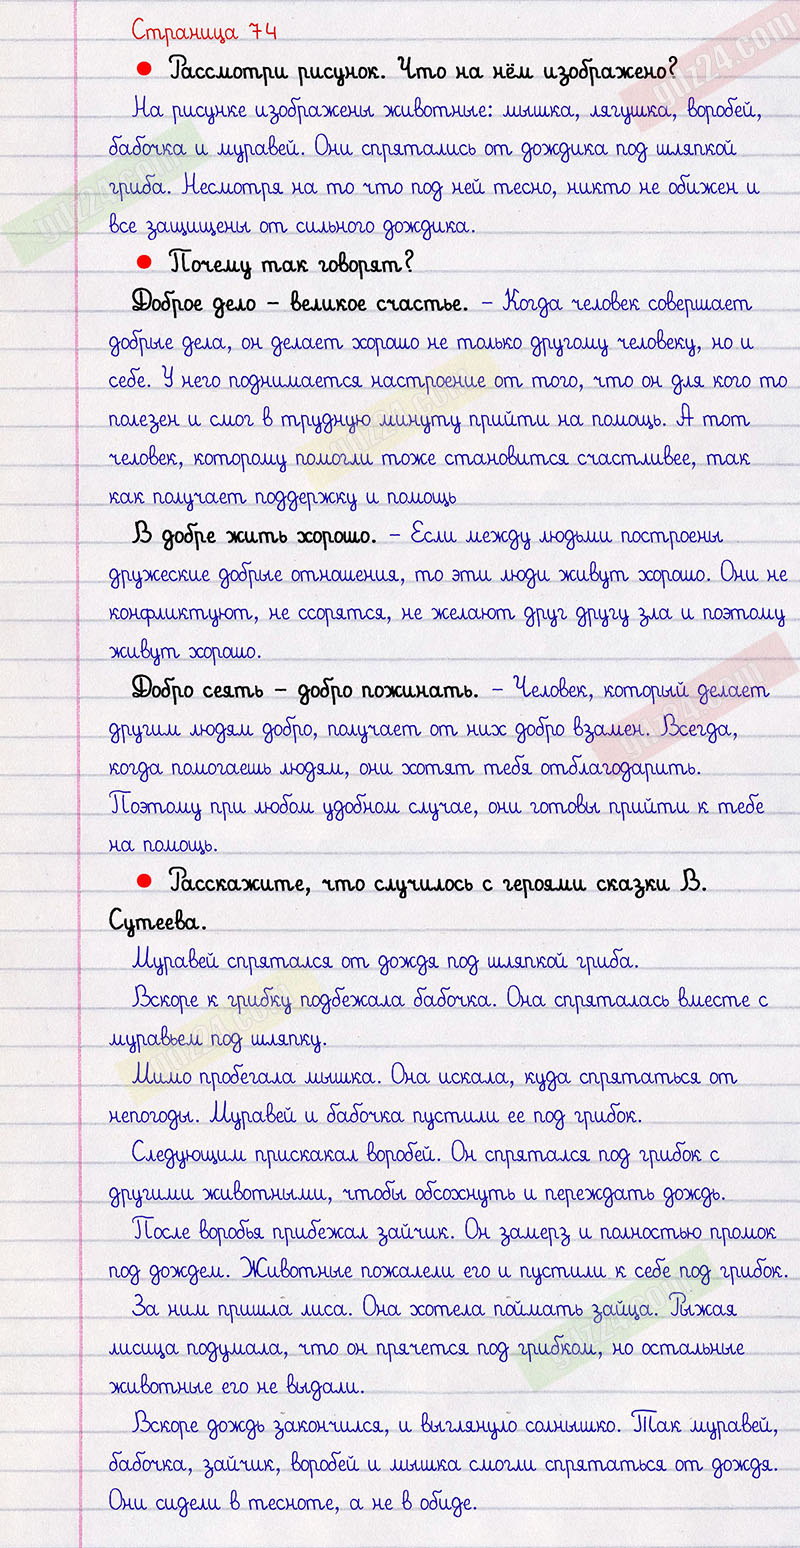 Страница 74
● Рассмотри рисунок. Что на нём изображено?
На рисунке изображены животные: мышка, лягушка, воробей,
бабочка и муравей. Они спрятались от дождика под шляпкой
гриба. Несмотря на то что под ней тесно, никто не обижен и
все защищены от сильного дождика.
● Почему так говорят?
Доброе дело – великое счастье. – Когда человек совершает
добрые дела, он делает хорошо не только другому человеку, но и
себе. У него поднимается настроение от того, что он для кого то
полезен и смог в трудную минуту прийти на помощь. А тот
человек, которому помогли тоже становится счастливее, так
как получает поддержку и помощь
В добре жить хорошо. – Если между людьми построены
дружеские добрые отношения, то эти люди живут хорошо. Они не
конфликтуют, не ссорятся, не желают друг другу зла и поэтому
живут хорошо.
Добро сеять – добро пожинать. – Человек, который делает
другим людям добро, получает от них добро взамен. Всегда,
когда помогаешь людям, они хотят тебя отблагодарить.
Поэтому при любом удобном случае, они готовы прийти к тебе
на помощь.
● Расскажите, что случилось с героями сказки В.
Сутеева.
Муравей спрятался от дождя под шляпкой гриба.
Вскоре к грибку подбежала бабочка. Она спряталась вместе с
муравьем под шляпку.
Мимо пробегала мышка. Она искала, куда спрятаться от
непогоды. Муравей и бабочка пустили ее под грибок.
Следующим прискакал воробей. Он спрятался под грибок с
другими животными, чтобы обсохнуть и переждать дождь.
После воробья прибежал зайчик. Он замерз и полностью промок
под дождем. Животные пожалели его и пустили к себе под грибок.
За ним пришла лиса. Она хотела поймать зайца. Рыжая
лисица подумала, что он прячется под грибком, но остальные
животные его не выдали.
Вскоре дождь закончился, и выглянуло солнышко. Так муравей,
бабочка, зайчик, воробей и мышка смогли спрятаться от дождя.
Они сидели в тесноте, а не в обиде.